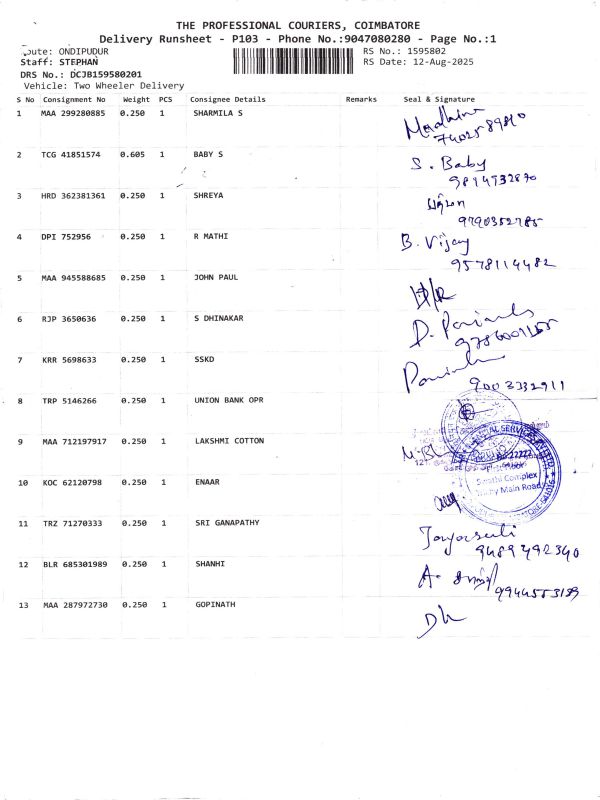 THE PROFESSIONAL COURIERS, COIMBATORE
Delivery Runsheet - P103 - Phone No.:9047080280 - Page No.:1
oute: ONDIPUDUR RS No.: 1595802
Staff: STEPHAN RS Date: 12-Aug-2025
DRS No.: DCJB159580201
Vehicle: Two Wheeler Delivery
S No Consignment No Weight PCS Consignee Details Remarks Seal & Signature
1 MAA 299280885 0.250 1 SHARMILA S
2 TCG 41851574 0.605 1 BABY S S. Baby
3 HRD 362381361 0.250 1 SHREYA
9790352785
4 DPI 752956 0.250 1 R MATHI B. Vijay
9578114482
5 MAA 945588685 0.250 1 JOHN PAUL
6 RJP 3650636 0.250 1 S DHINAKAR
7 KRR 5698633 0.250 1 SSKD
9003332911
8 TRP 5146266 0.250 1 UNION BANK OPR
9 MAA 712197917 0.250 1 LAKSHMI COTTON
10 KOC 62120798 0.250 1 ENAAR
Complex
Main Road
11 TRZ 71270333 0.250 1 SRI GANAPATHY
9489492340
12 BLR 685301989 0.250 1 SHANHI
13 MAA 287972730 0.250 1 GOPINATH